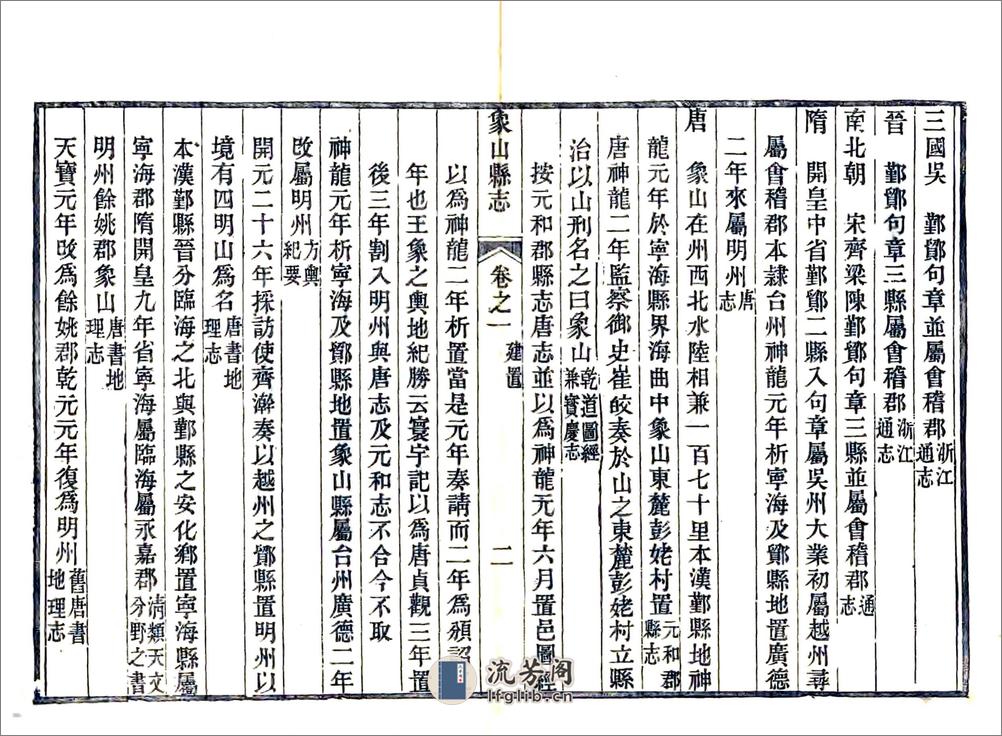 三國吳　鄞鄮句章並屬會稽郡浙江通志
晉　鄞鄮句章三縣屬會稽郡浙江通志
南北朝　宋齊梁陳鄞鄮句章三縣並屬會稽郡通志
隋　開皇中省鄞鄮二縣入句章屬吳州大業初屬越州尋
屬會稽郡本隸台州神龍元年析寧海及鄮縣地置廣德
二年來屬明州唐志
唐　象山在州西北水陸相兼一百七十里本漢鄞縣地神
龍元年於寧海縣界海曲中象山東麓彭姥村置元和郡縣志
唐神龍二年監察御史崔皎奏於山之東麓彭姥村立縣
治以山形名之曰象山乾道圖經兼寶慶志
按元和郡縣志唐志並以為神龍元年六月置邑圖經
象山縣志　卷之一　建置　二
以為神龍二年析置當是元年奏請而二年為頒詔
年也王象之輿地紀勝云寰宇記以為唐貞觀三年置
後三年割入明州與唐志及元和志不合今不取
神龍元年析寧海及鄮縣地置象山縣屬台州廣德二年
改屬明州方輿紀要
開元二十六年採訪使齊澣奏以越州之鄮縣置明州以
境有四明山為名唐書地理志
本漢鄞縣晉分臨海之北與鄞縣之安化鄉置寧海縣屬
寧海郡隋開皇九年省寧海屬臨海屬永嘉郡清類天文分野之書
明州餘姚郡象山唐書地理志
天寶元年改為餘姚郡乾元元年復為明州舊唐書地理志
流芳阁
lfglib.cn